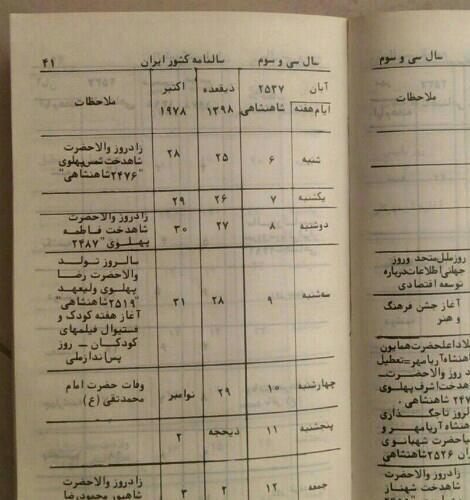 سال سی و سوم
سالنامه کشور ایران
۴۱
آبان
۲۵۳۷
ذیقعده
اکتبر
ملاحظات
ایام هفته
شاهنشاهی
۱۳۹۸
۱۹۷۸
شنبه
۶
۲۵
۲۸
زادروز والاحضرت
شاهدخت شمس پهلوی
"۲۴۷۶شاهنشاهی"
یکشنبه
۷
۲۶
۲۹
دوشنبه
۸
۲۷
۳۰
زادروز والاحضرت
شاهدخت فاطمه
پهلوی "۲۴۸۷
سه‌شنبه
۹
۲۸
۳۱
سالروز تولد
والاحضرت رضا
پهلوی ولیعهد
"۲۵۱۹شاهنشاهی"
آغاز هفته کودک و
فستیوال فیلمهای
کودکان – روز
پس‌اندازملی
چهارشنبه
۱۰
۲۹
نوامبر
وفات حضرت امام
محمدتقی (ع)
پنجشنبه
۱۱
ذیحجه
۲
جمعه
۱۲
۲
۳
زادروز والاحضرت
شاهپور محمودرضا
سال سی و سوم
ملاحظات
روزملل‌متحد وروز
جهانی اطلاعات‌درباره
توسعه اقتصادی
آغاز جشن فرهنگ
و هنر
شاهنشاه آریامهر=تعطیل
روز والاحضرت
شاهدخت اشرف پهلوی
شاهنشاهی.
تاجگذاری
شاهنشاه آریامهر و
علیاحضرت شهبانوی
ایران ۲۵۲۶شاهنشاهی
زادروز والاحضرت
شاهدخت شهناز